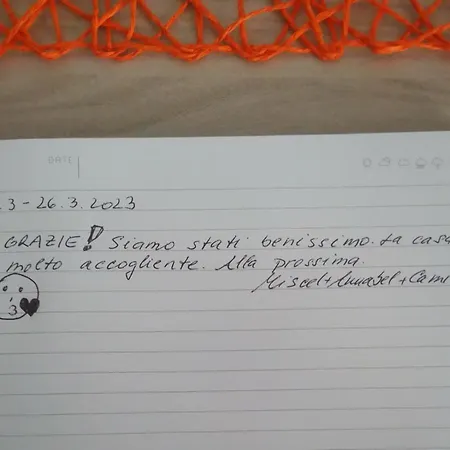 .3 - 26.3.2023
GRAZIE! Siamo stati benissimo. La casa
molto accogliente. Alla prossima.
+Annabel+Cami